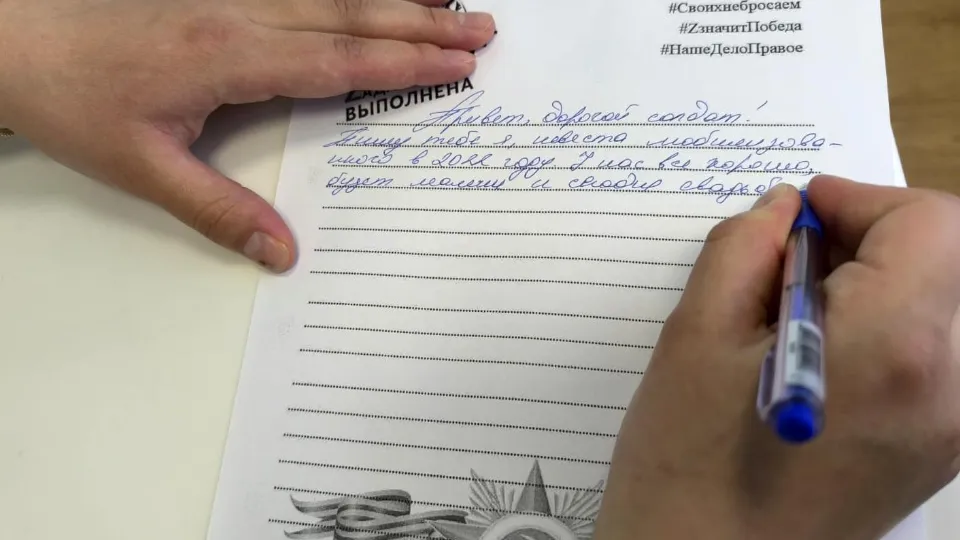 #Своихнебросаем
#ZначитПобеда
#НашеДелоПравое
ВЫПОЛНЕНА
Привет, дорогой солдат!
Пишу тебе я, невеста мобилизова-
нного в 2022 году. У нас все хорошо,
и свадьб